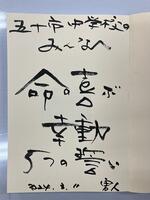 五十市中学校の
み〜なへ
命の喜ぶ
幸動
5つの誓い